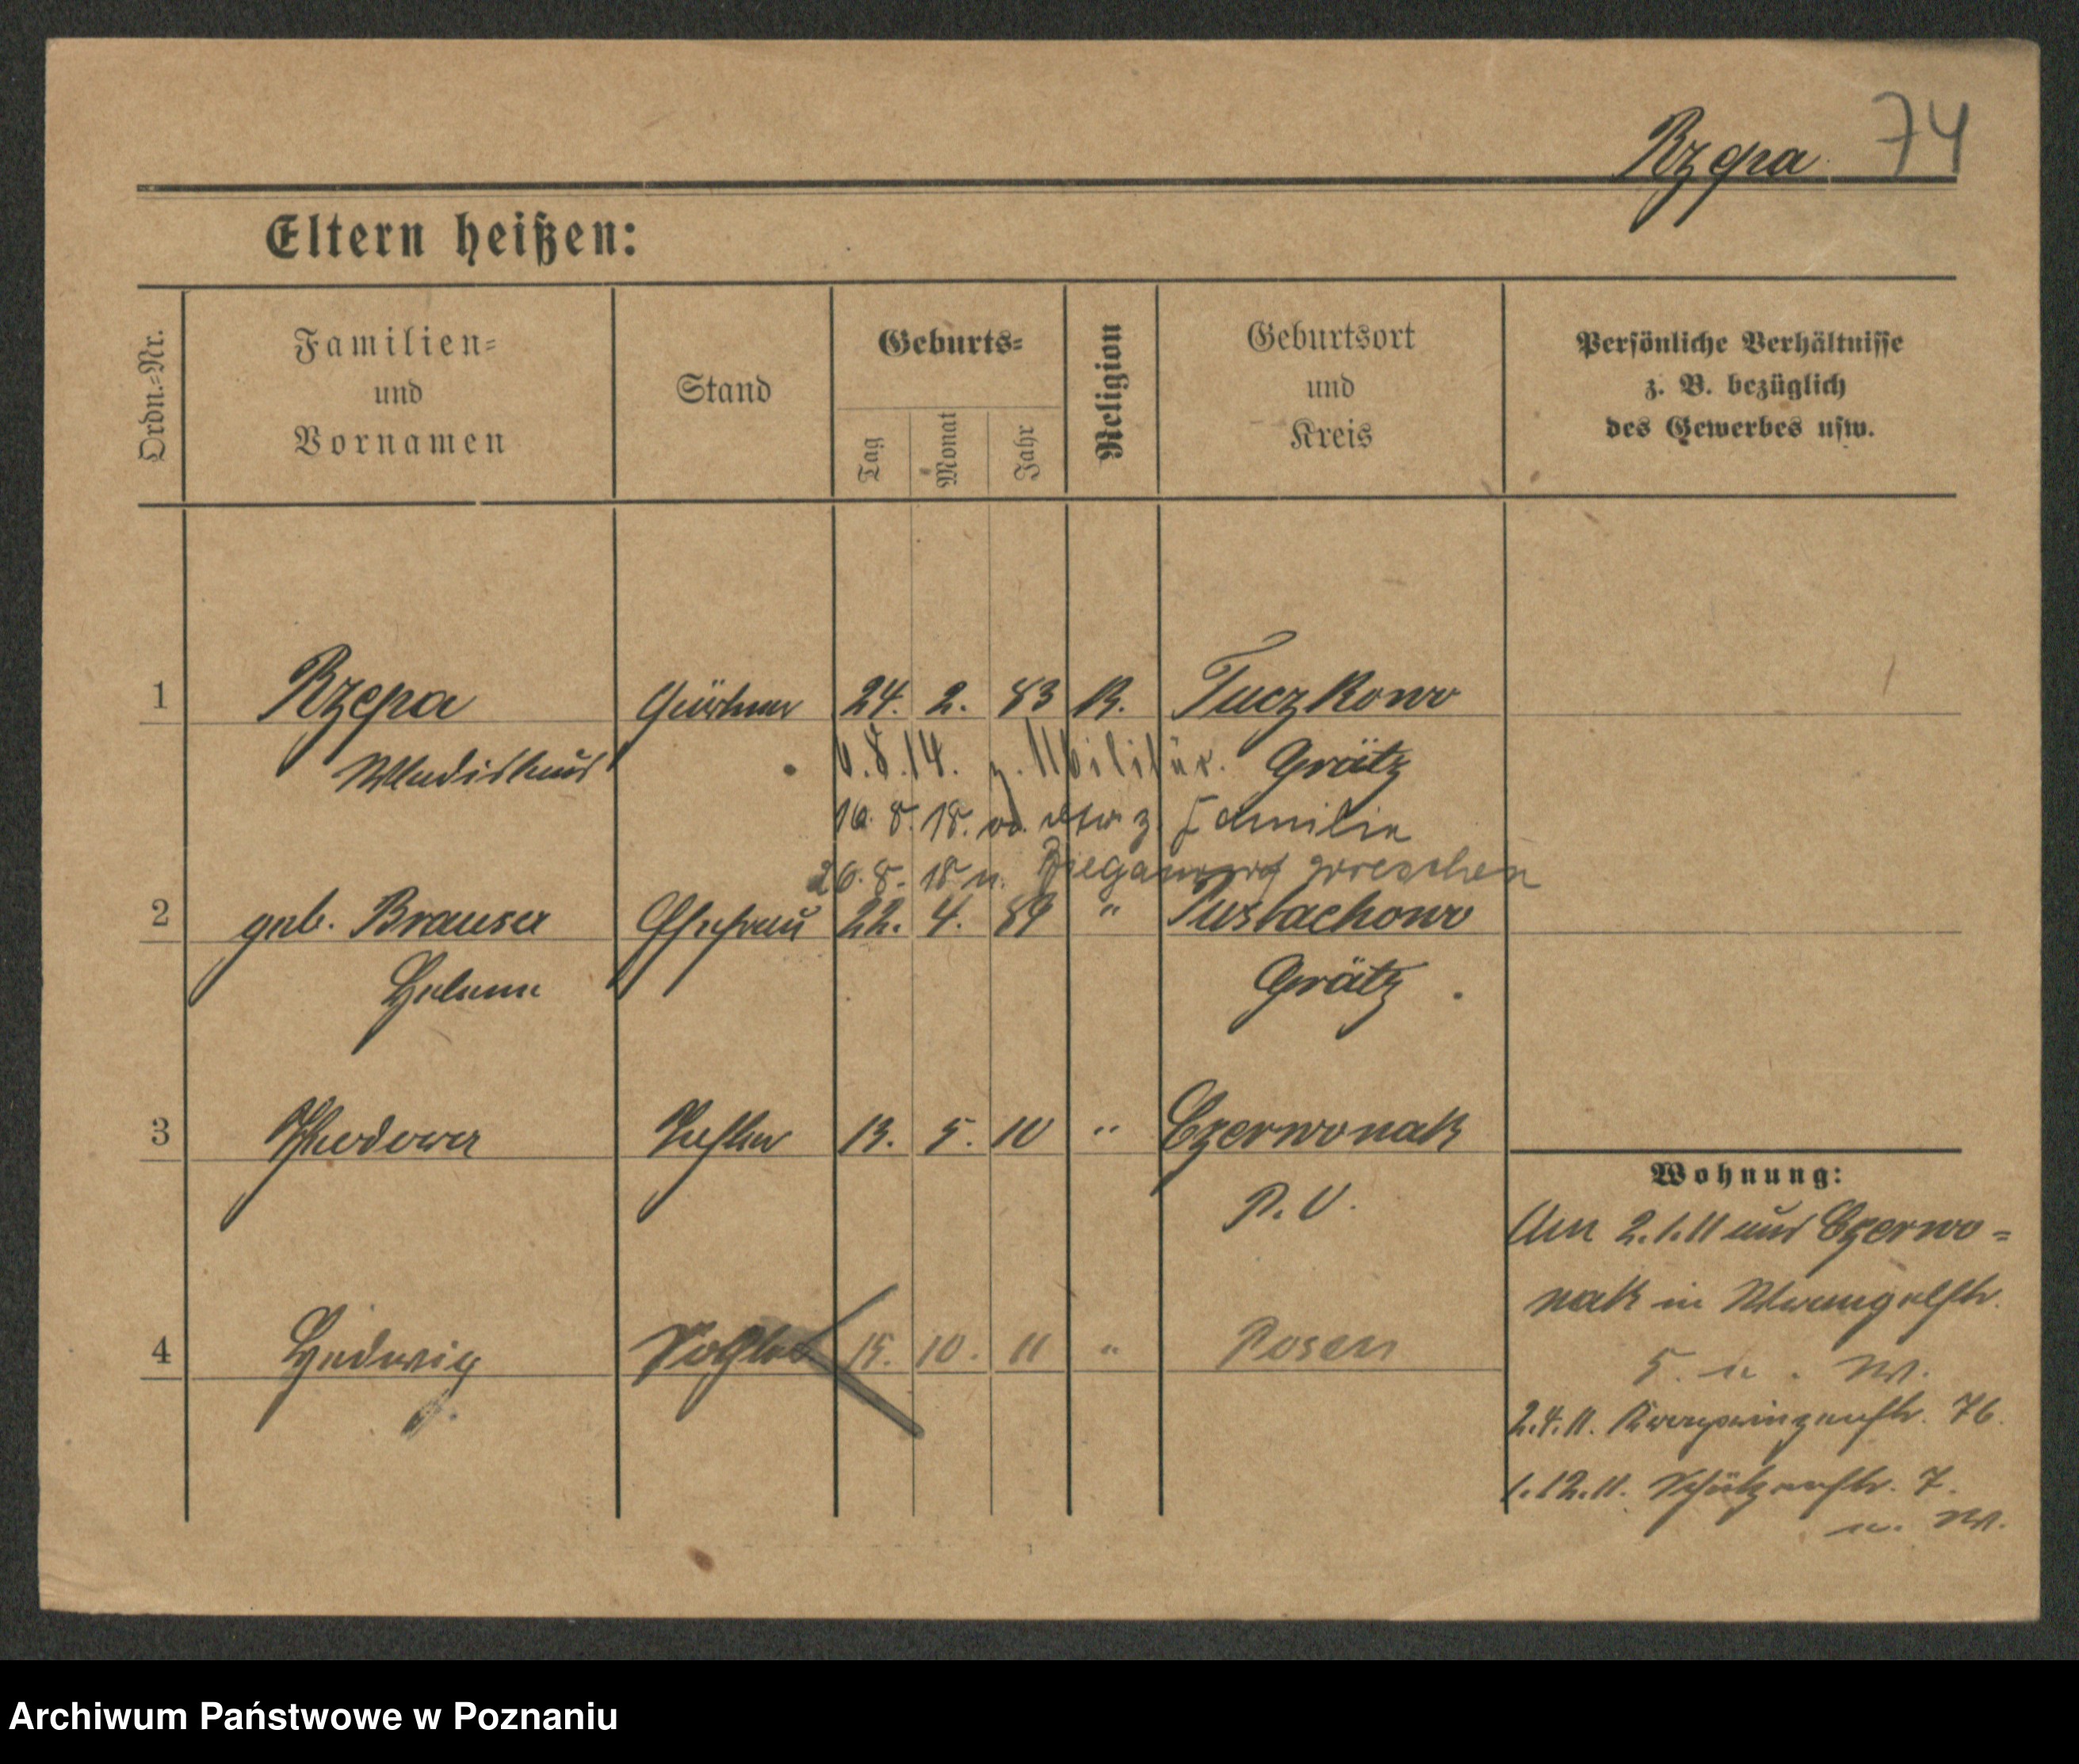 Rzepa 74
Eltern heißen:
Ordn.-Nr.
Familien-
und
Vornamen
Stand
Geburts-
Tag
Monat
Jahr
Religion
Geburtsort
und
Kreis
Persönliche Verhältnisse
z. B. bezüglich
des Gewerbes usw.
1 Rzepa Gärtner 24. 2. 83 K. Tuczkowo
Wladislaus Grätz
6.8.14. z. Militär.
16. 8. 18. z. Familie
26. 8. 18 n. Wreschen
2 geb. Brauser Ehefrau 22. 4. 89 " Pustachowo
Helene Grätz .
3 Theodora Tochter 13. 5. 10 " Czerwonak
P. O.
4 Hedwig Tochter 15. 10. 11 " Posen
Wohnung:
Am 2.1.11 aus Czerwo=
nak in Wrangelstr.
5. u. W.
2.4.11. Kronprinzenstr. 76.
1.12.11. Schützenstr. 7.
u. W.
Archiwum Państwowe w Poznaniu